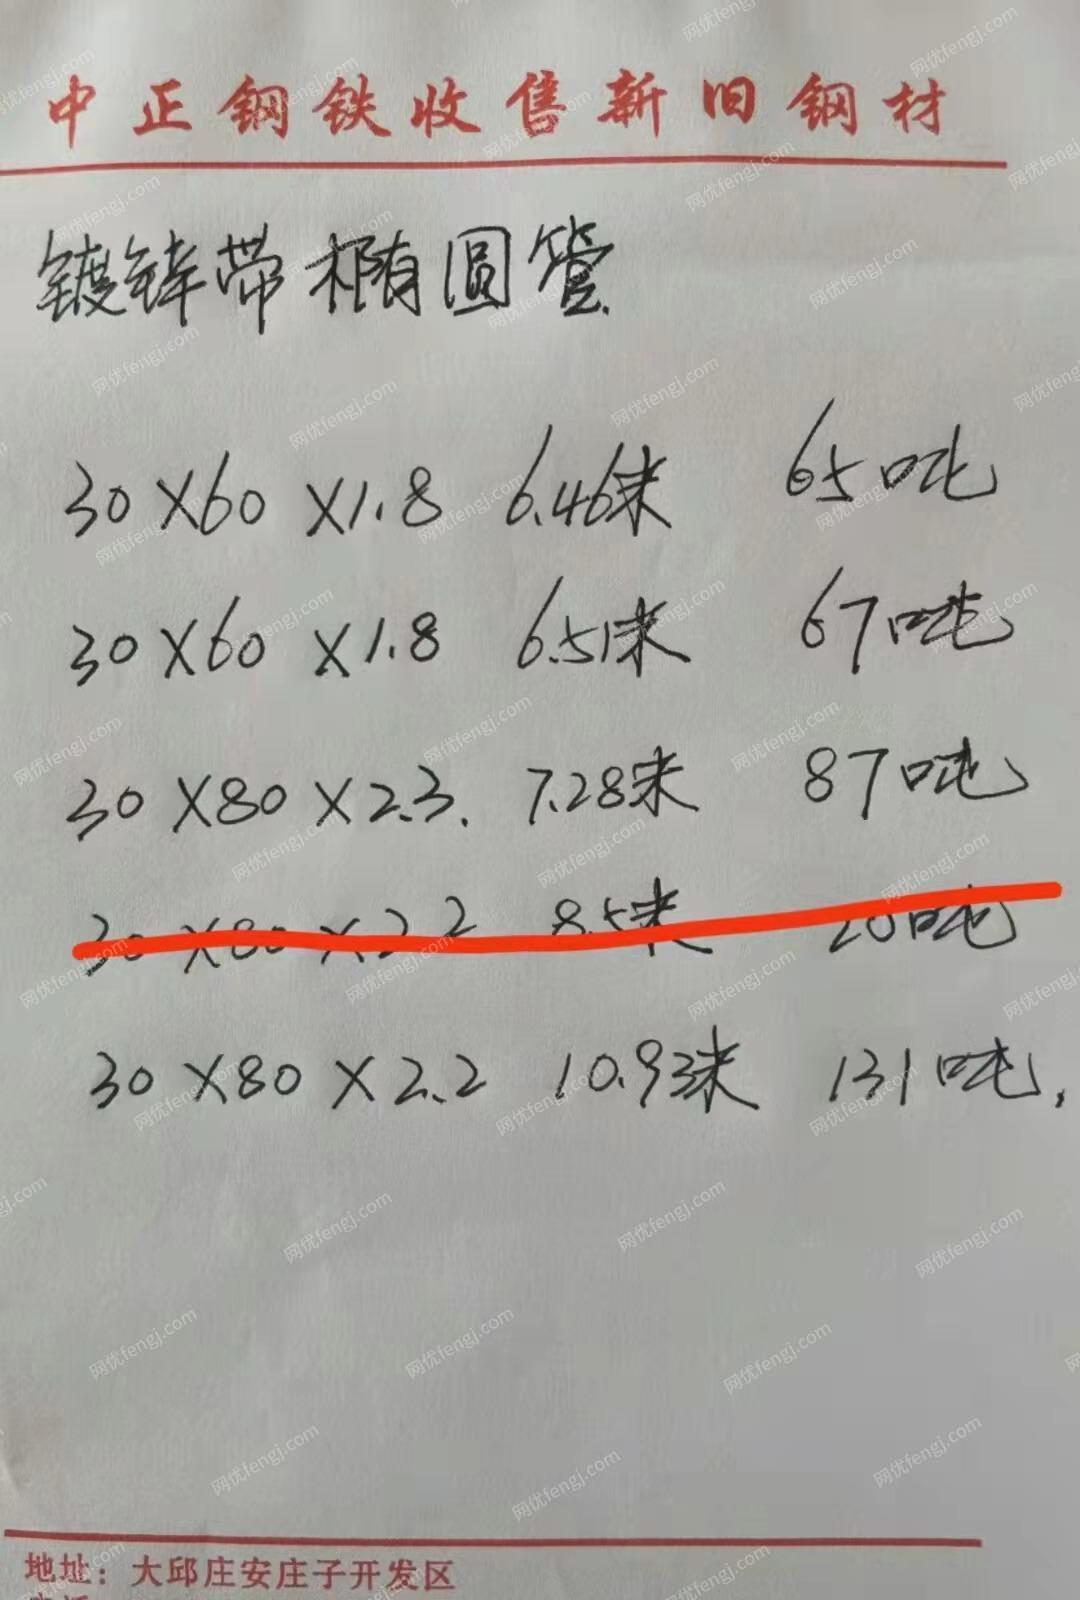 中正钢铁收售新旧钢材
镀锌带椭圆管
30×60×1.8 6.46米 65吨
30×60×1.8 6.51米 67吨
30×80×2.3. 7.28米 87吨
30×80×2.2 8.5米 20吨
30×80×2.2 10.93米 131吨,
地址：大邱庄安庄子开发区
网优fengj.com